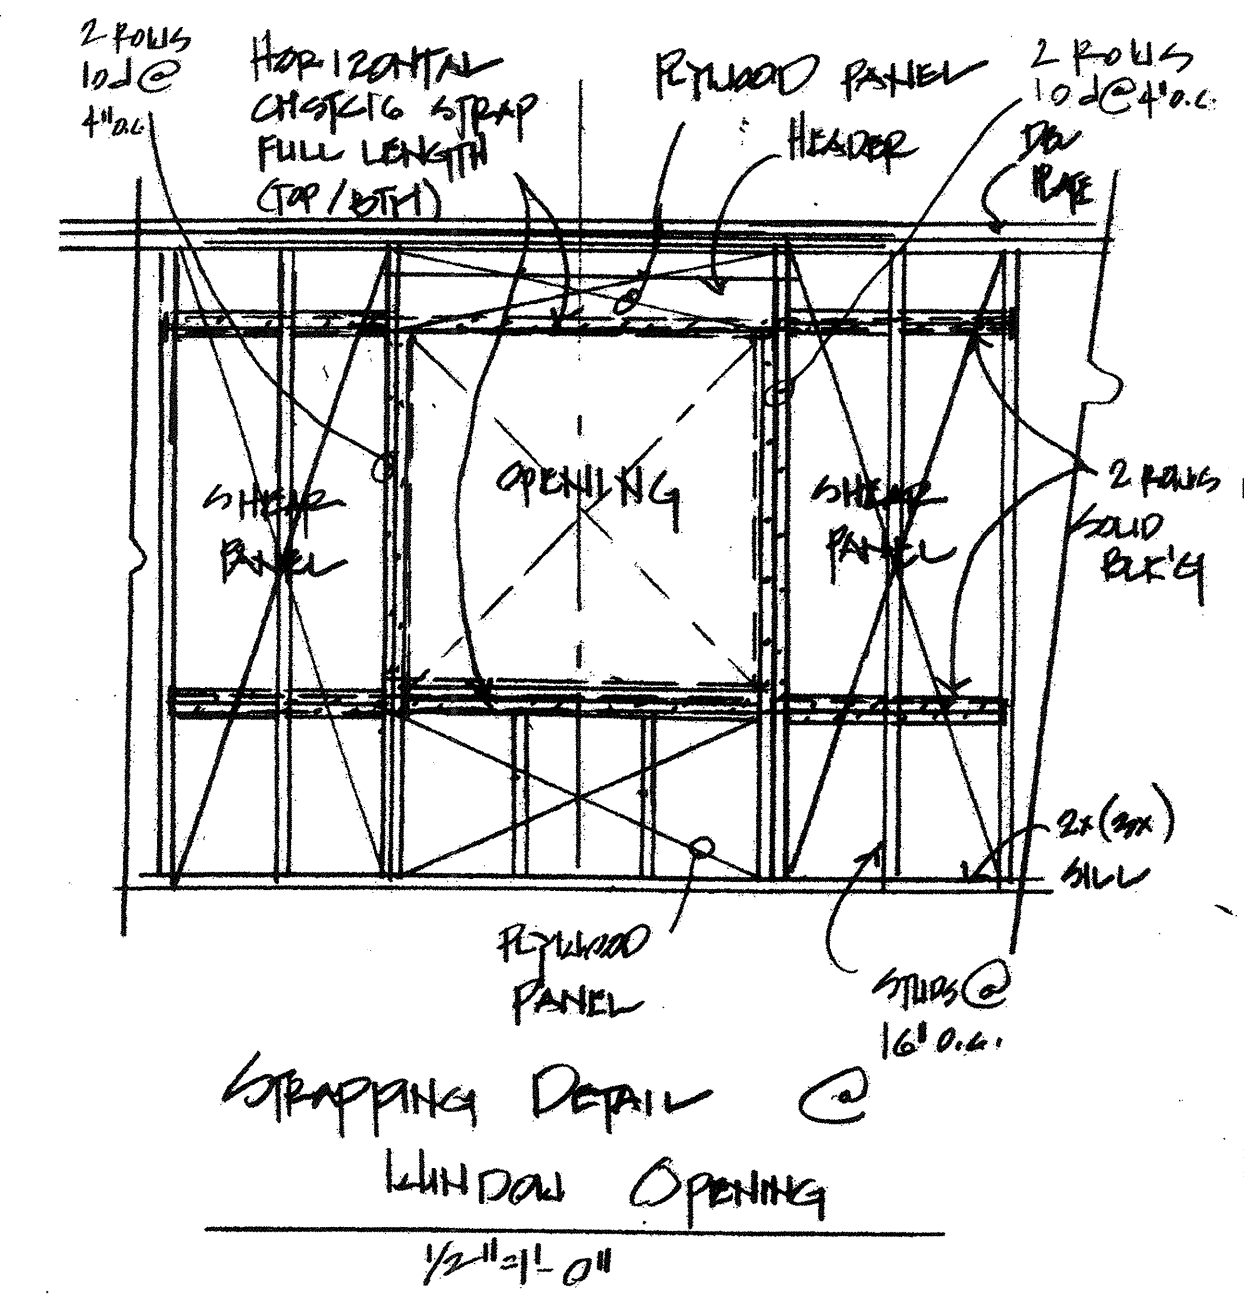 2 ROWS
10d @
4" O.C.
HORIZONTAL
CMSTC16 STRAP
FULL LENGTH
(TOP / BTM)
PLYWOOD PANEL
HEADER
2 ROWS
10d @ 4" O.C.
DBL
PLATE
OPENING
SHEAR
PANEL
SHEAR
PANEL
2 ROWS
SOLID
BLK'G
2x (3x)
SILL
PLYWOOD
PANEL
STUDS @
16" O.C.
STRAPPING DETAIL @
WINDOW OPENING
1/2" = 1'-0"